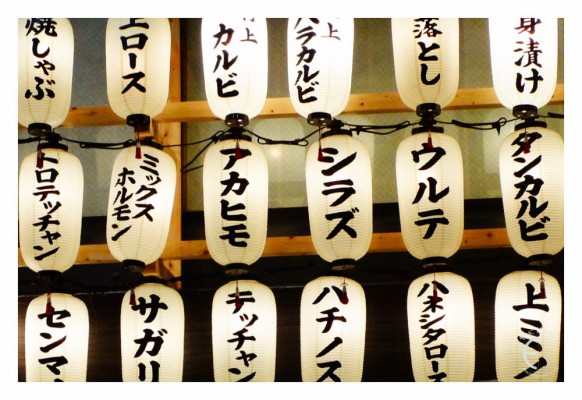 焼しゃぶ
上ロース
上
カルビ
バラカルビ
落とし
身漬け
トロテッチャン
ミックス
ホルモン
アカヒモ
シラズ
ウルテ
タンカルビ
センマ
サガリ
テッチャン
ハチノス
ハネシタロース
上ミノ